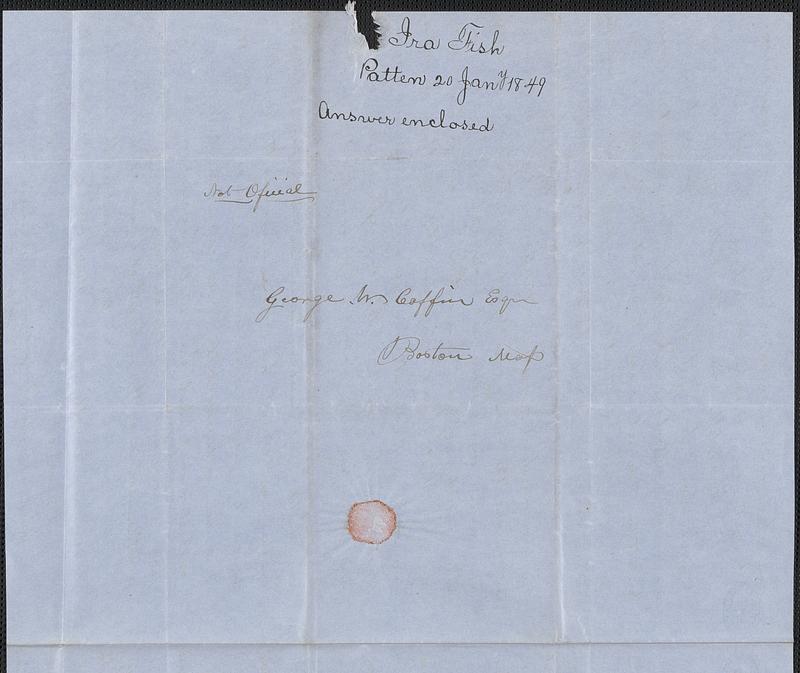 Ira Fish
Patten 20 Jany 1849
Answer enclosed
Not Oficial
George W. Coffin Esqr
Boston Mass